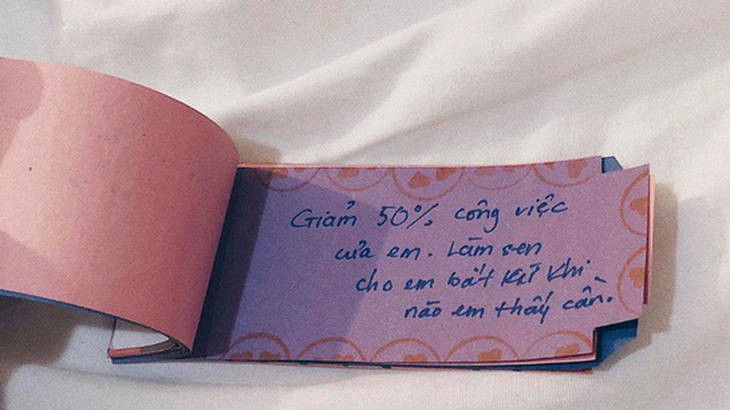 Giảm 50% công việc
của em. Làm sen
cho em bất kì khi
nào em thấy cần.